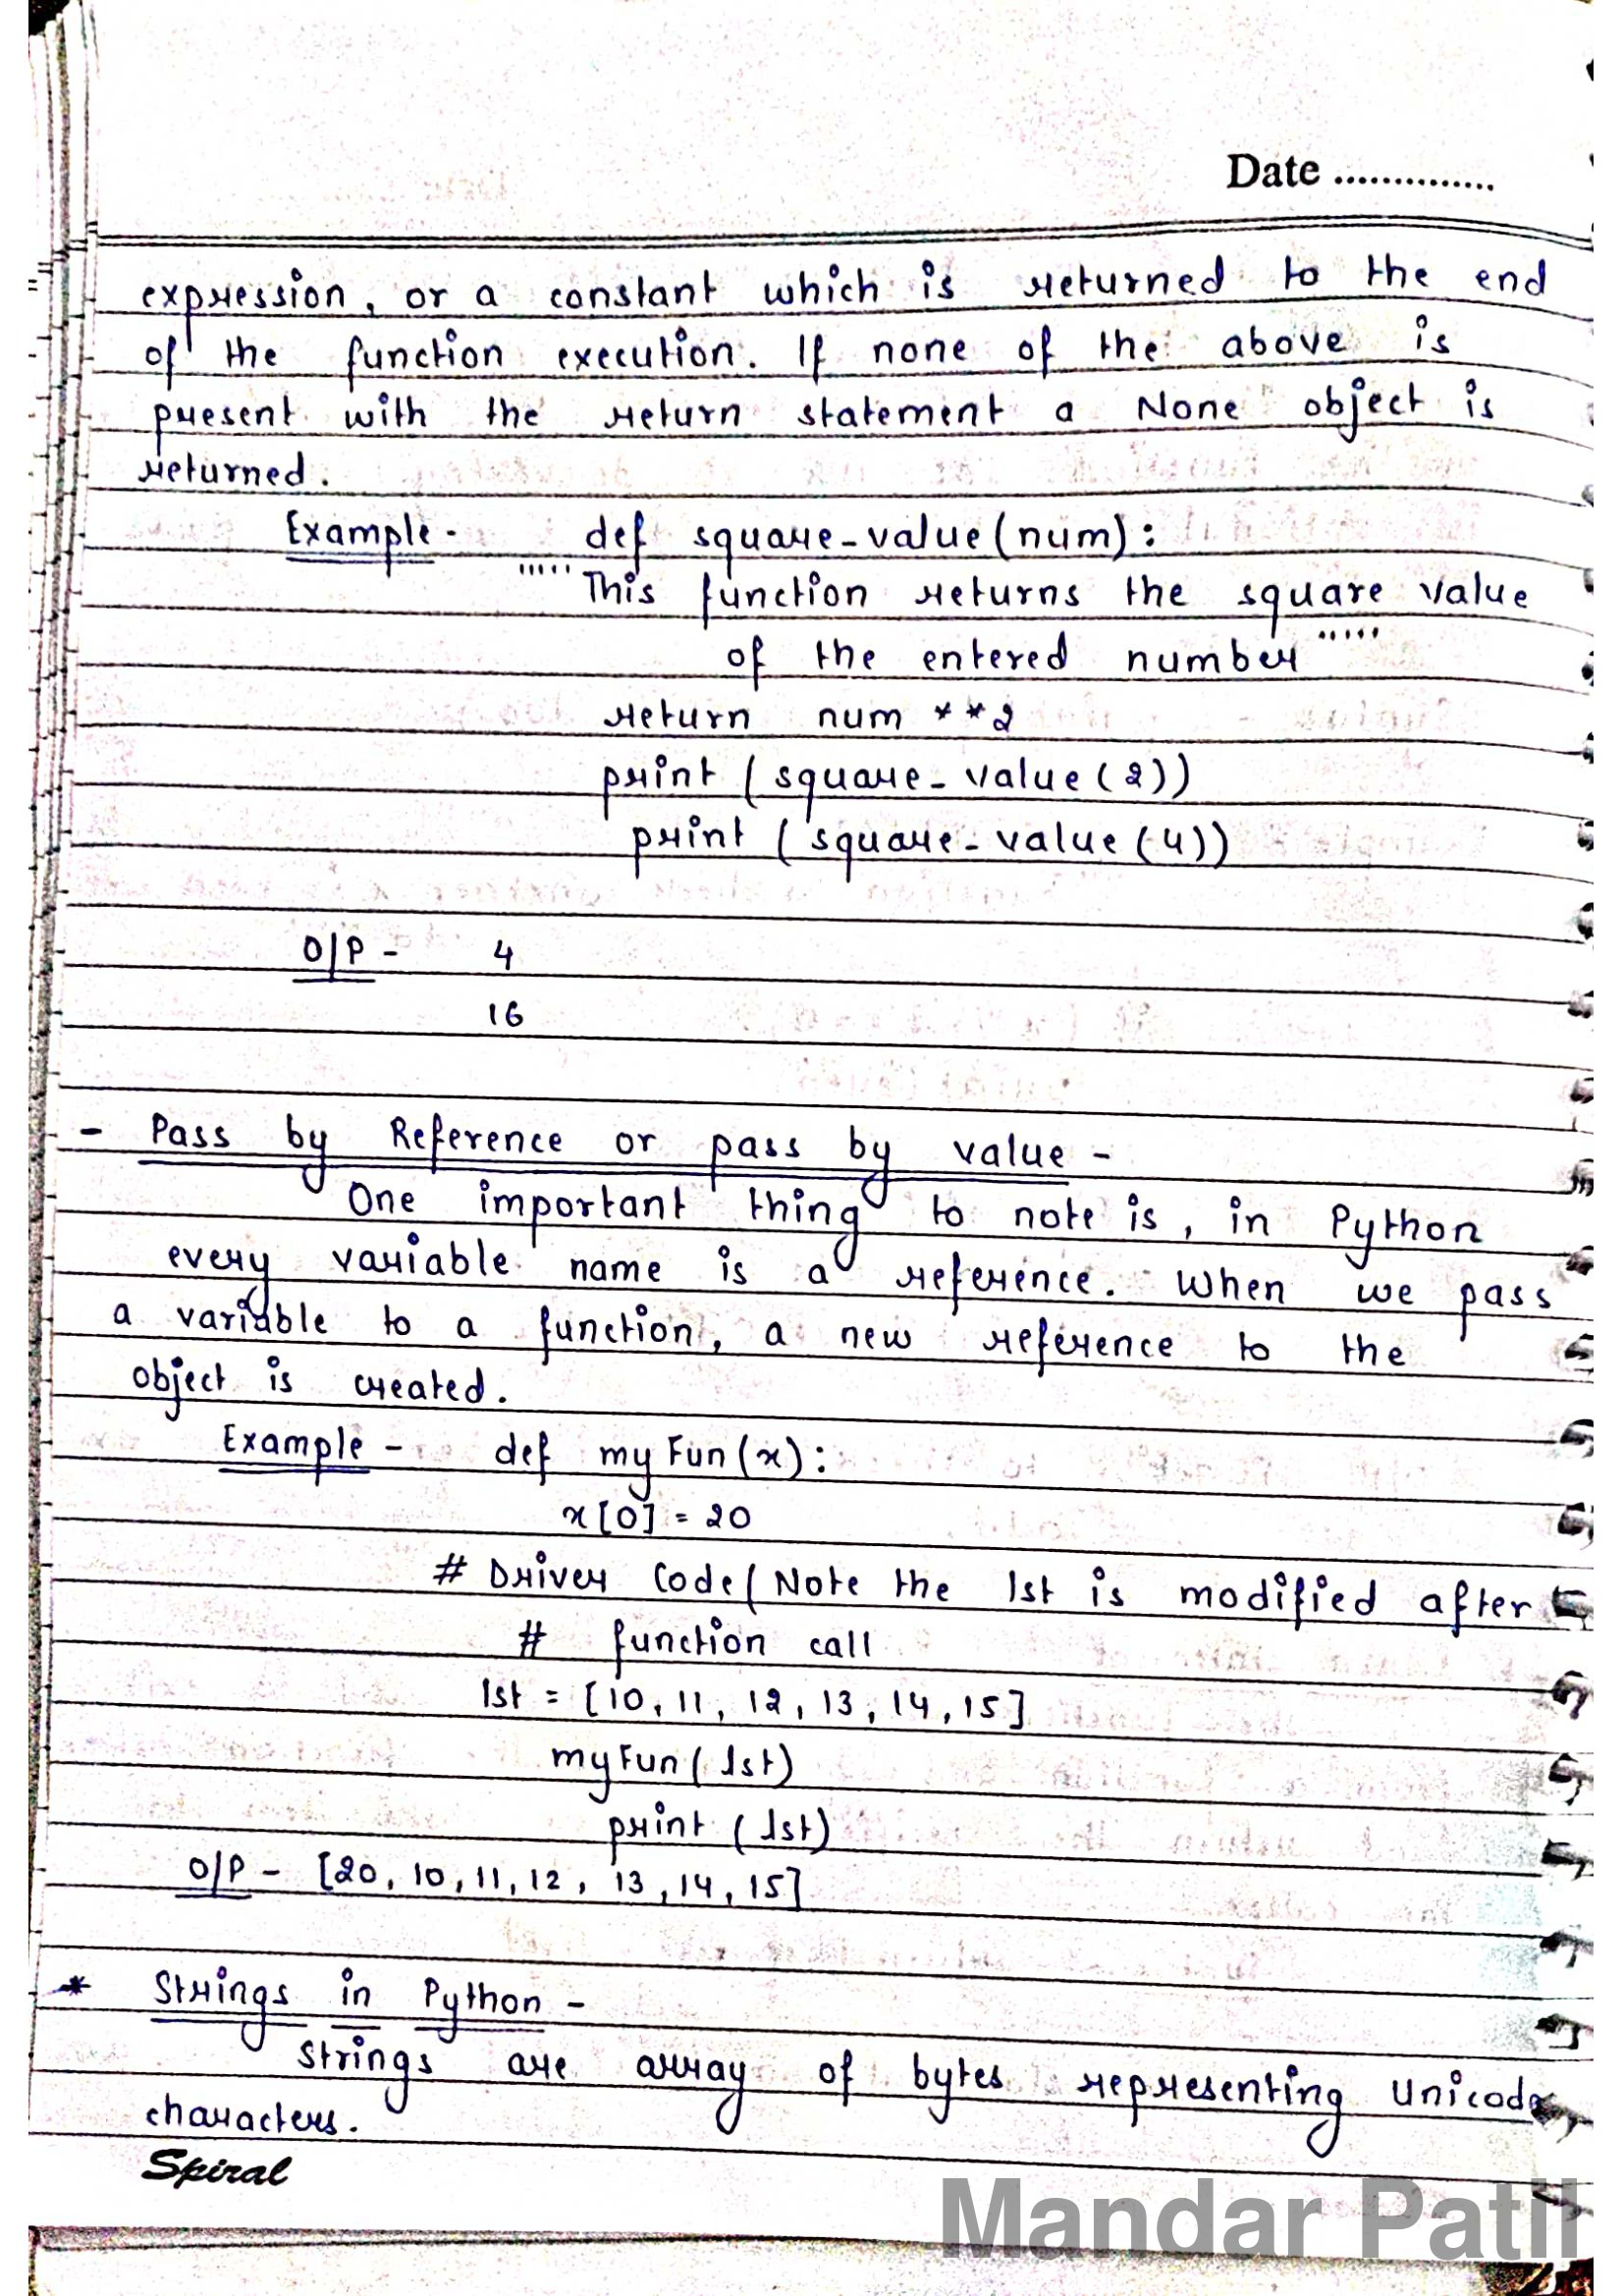 Date ..............
expression, or a constant which is returned to the end
of the function execution. If none of the above is
present with the return statement a None object is
returned.
Example - def square-value(num):
""""" This function returns the square value
of the entered number """""
return num **2
print (square-value(2))
print (square-value(4))
O/P - 4
16
- Pass by Reference or pass by value -
One important thing to note is, in Python
every variable name is a reference. When we pass
a variable to a function, a new reference to the
object is created.
Example - def myFun(x):
x[0] = 20
# Driver Code(Note the lst is modified after
# function call
lst = [10, 11, 12, 13, 14, 15]
myFun(lst)
print (lst)
O/P - [20, 10, 11, 12, 13, 14, 15]
* Strings in Python -
Strings are array of bytes representing Unicode
characters.
Spiral
Mandar Patil